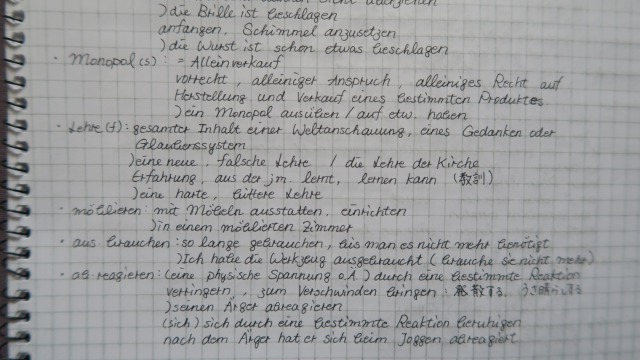 )die Brille ist beschlagen
anfangen, Schimmel anzusetzen
)die Wurst ist schon etwas beschlagen
· Monopol(s) : = Alleinverkauf
vorrecht, alleiniger Anspruch, alleiniges Recht auf
Herstellung und Verkauf eines bestimmten Produktes
)ein Monopol ausüben / auf etw. haben
· Lehre(f) : gesamter Inhalt einer Weltanschauung, eines Gedanken oder
Glaubenssystem
)eine neue, falsche Lehre / die Lehre der Kirche
Erfahrung, aus der jm. lernt, lernen kann (教訓)
)eine harte, bittere Lehre
· möblieren : mit Möbeln ausstatten, einrichten
)in einem möblierten Zimmer
· aus brauchen : so lange gebrauchen, bis man es nicht mehr benötigt
)Ich habe die Werkzeug ausgebraucht (brauche sie nicht mehr)
· ab·reagieren : (eine physische Spannung o.Ä.) durch eine bestimmte Reaktion
verringern, zum Verschwinden bringen : 発散する、うさ晴らしする
)seinen Ärger abreagieren
(sich) sich durch eine bestimmte Reaktion beruhigen
nach dem Ärger hat er sich beim Joggen abreagiert